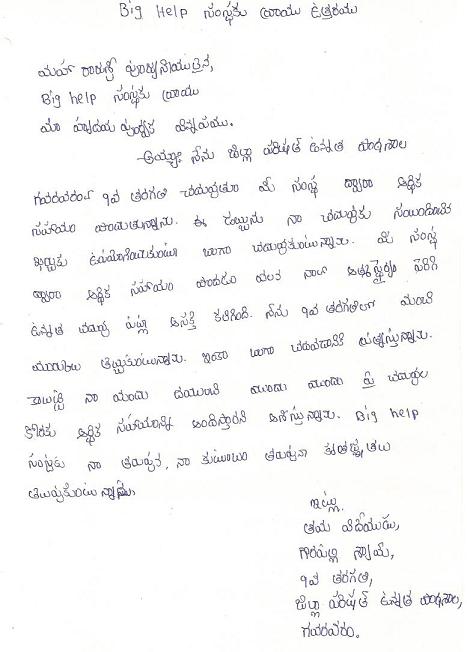 Big Help సంస్థకు వ్రాయు ఉత్తరము
మహా రాజశ్రీ పూజ్యనీయులైన,
Big help సంస్థకు వ్రాయు
మా హృదయ పూర్వక విన్నపము.
అయ్యా! నేను జిల్లా పరిషత్ ఉన్నత పాఠశాల
గవరవరంలో 9వ తరగతి చదువుతూ మీ సంస్థ ద్వారా ఆర్థిక
సహాయం పొందుతున్నాను. ఈ డబ్బును నా చదువుకు సంబంధించిన
ఖర్చుకు ఉపయోగించుకుంటూ బాగా చదువుకుంటున్నాను. మీ సంస్థ
ద్వారా ఆర్థిక సహాయం పొందడం వలన నాలో ఆత్మస్థైర్యం పెరిగి
ఉన్నత చదువు పట్ల ఆసక్తి కలిగింది. నేను 9వ తరగతిలో మంచి
మార్కులు తెచ్చుకుంటున్నాను. ఇంకా బాగా చదవడానికి యత్నిస్తున్నాను.
కాబట్టి నా యందు దయుంచి ముందు ముందు పై చదువుల
కొరకు ఆర్థిక సహాయాన్ని అందిస్తారని ఆశిస్తున్నాను. Big help
సంస్థకు నా తరుపున, నా కుటుంబం తరుపున కృతజ్ఞతలు
తెలుపుకుంటున్నాను.
ఇట్లు.
తమ విధేయుడు,
గారపల్లి స్వామి,
9వ తరగతి,
జిల్లా పరిషత్ ఉన్నత పాఠశాల,
గవరవరం.